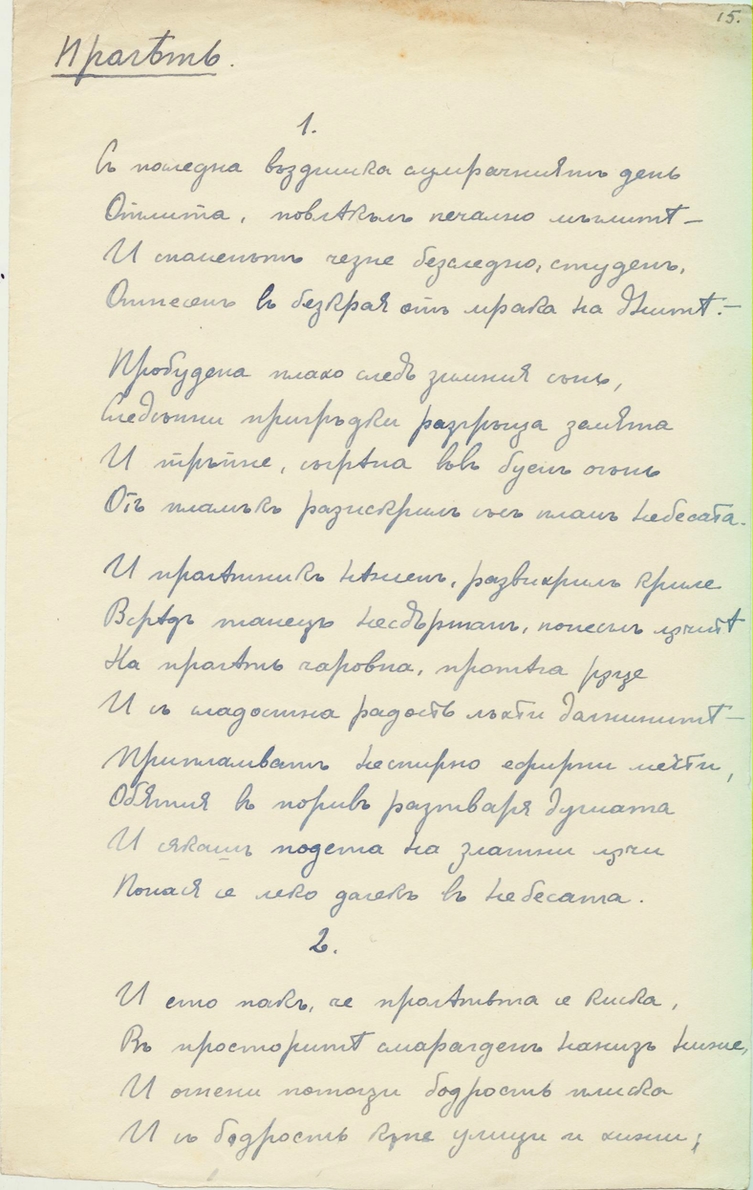 15.
Пролѣть.
1.
Съ последна въздишка сумрачниятъ день
Отлита, повлѣкълъ печално мъглитѣ –
И споменътъ чезне безследно, студенъ,
Отнесенъ въ безкрая отъ мрака на днитѣ. –
Пробудена плахо следъ зимния сънь,
Следсътни прегръдки разгръща земята
И тръпне, съгрѣна във буенъ огънь
Отъ пламъкъ разискрилъ съсъ планъ небесата.
И пролѣтникъ нѣженъ, развихрилъ криле
Всрѣдъ танецъ несдържанъ, понесълъ лѫчитѣ
На пролѣть чаровна, протѣга рѫце
И съ сладостна радость лъхти далнинитѣ –
Припламватъ неспирно ефирни мечти,
Обятия въ поривъ разтваря душата
И сякашъ подета на златни лѫчи
Понася се леко далекъ въ небесата.
2.
И ето пакъ, че пролѣтьта е киска,
Въ просторитѣ смарагденъ нанизъ ниже,
И огнени потоци бодрость плиска
И съ бодрость кѫпе улици и хижи;